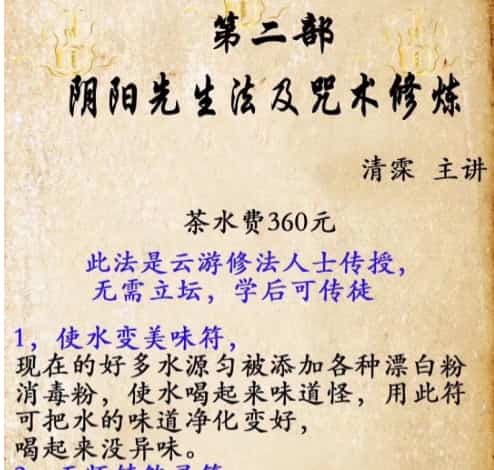 第二部
阴阳先生法及咒术修炼
清霂 主讲
茶水费360元
此法是云游修法人士传授，
无需立坛，学后可传徒
1，使水变美味符，
现在的好多水源匀被添加各种漂白粉
消毒粉，使水喝起来味道怪，用此符
可把水的味道净化变好，
喝起来没异味。